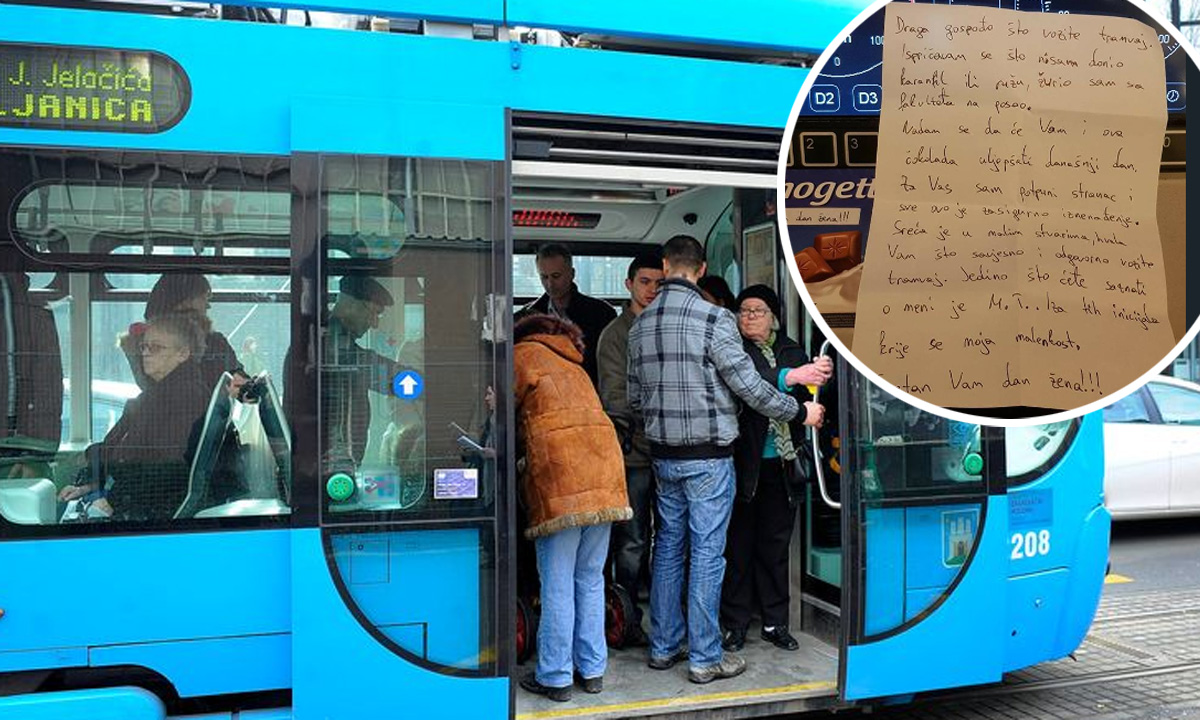 J. Jelačića
LJANICA
208
D2
D3
2
3
100
0
mogett
dan žena!!!
Draga gospođo što vozite tramvaj.
Ispričavam se što nisam donio
karanfil ili ružu, žurio sam sa
fakulteta na posao.
Nadam se da će Vam i ova
čokolada uljepšati današnji dan.
Za Vas sam potpuni stranac i
sve ovo je zasigurno iznenađenje.
Sreća je u malim stvarima, hvala
Vam što savjesno i odgovorno vozite
tramvaj. Jedino što ćete saznati
o meni je M.T.. Iza tih inicijala
krije se moja malenkost.
Sretan Vam dan žena!!!